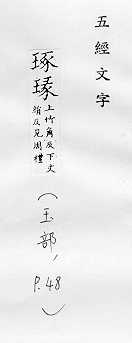 五經文字
琢瑑
上竹角反下丈
絹反見周禮
(玉部, P.48)